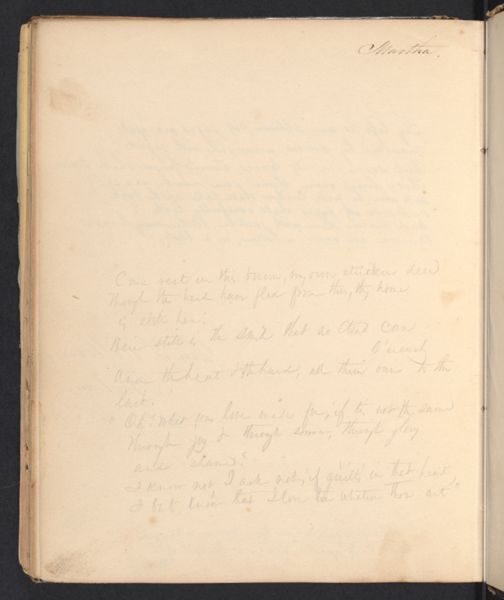 Martha.
Come rest in this bosom, my own stricken deer
Though the herd have fled from thee, thy home
is still here;
Here still is the smile that no cloud can
O'ercast
And the heart & the hand, all thine own to the
last.
"Oh! what was love made for, if 'tis not the same
Through joy & through sorrow, through glory
and shame?
I know not I ask not, if guilt's in that heart
I but know that I love thee whatever thou art."